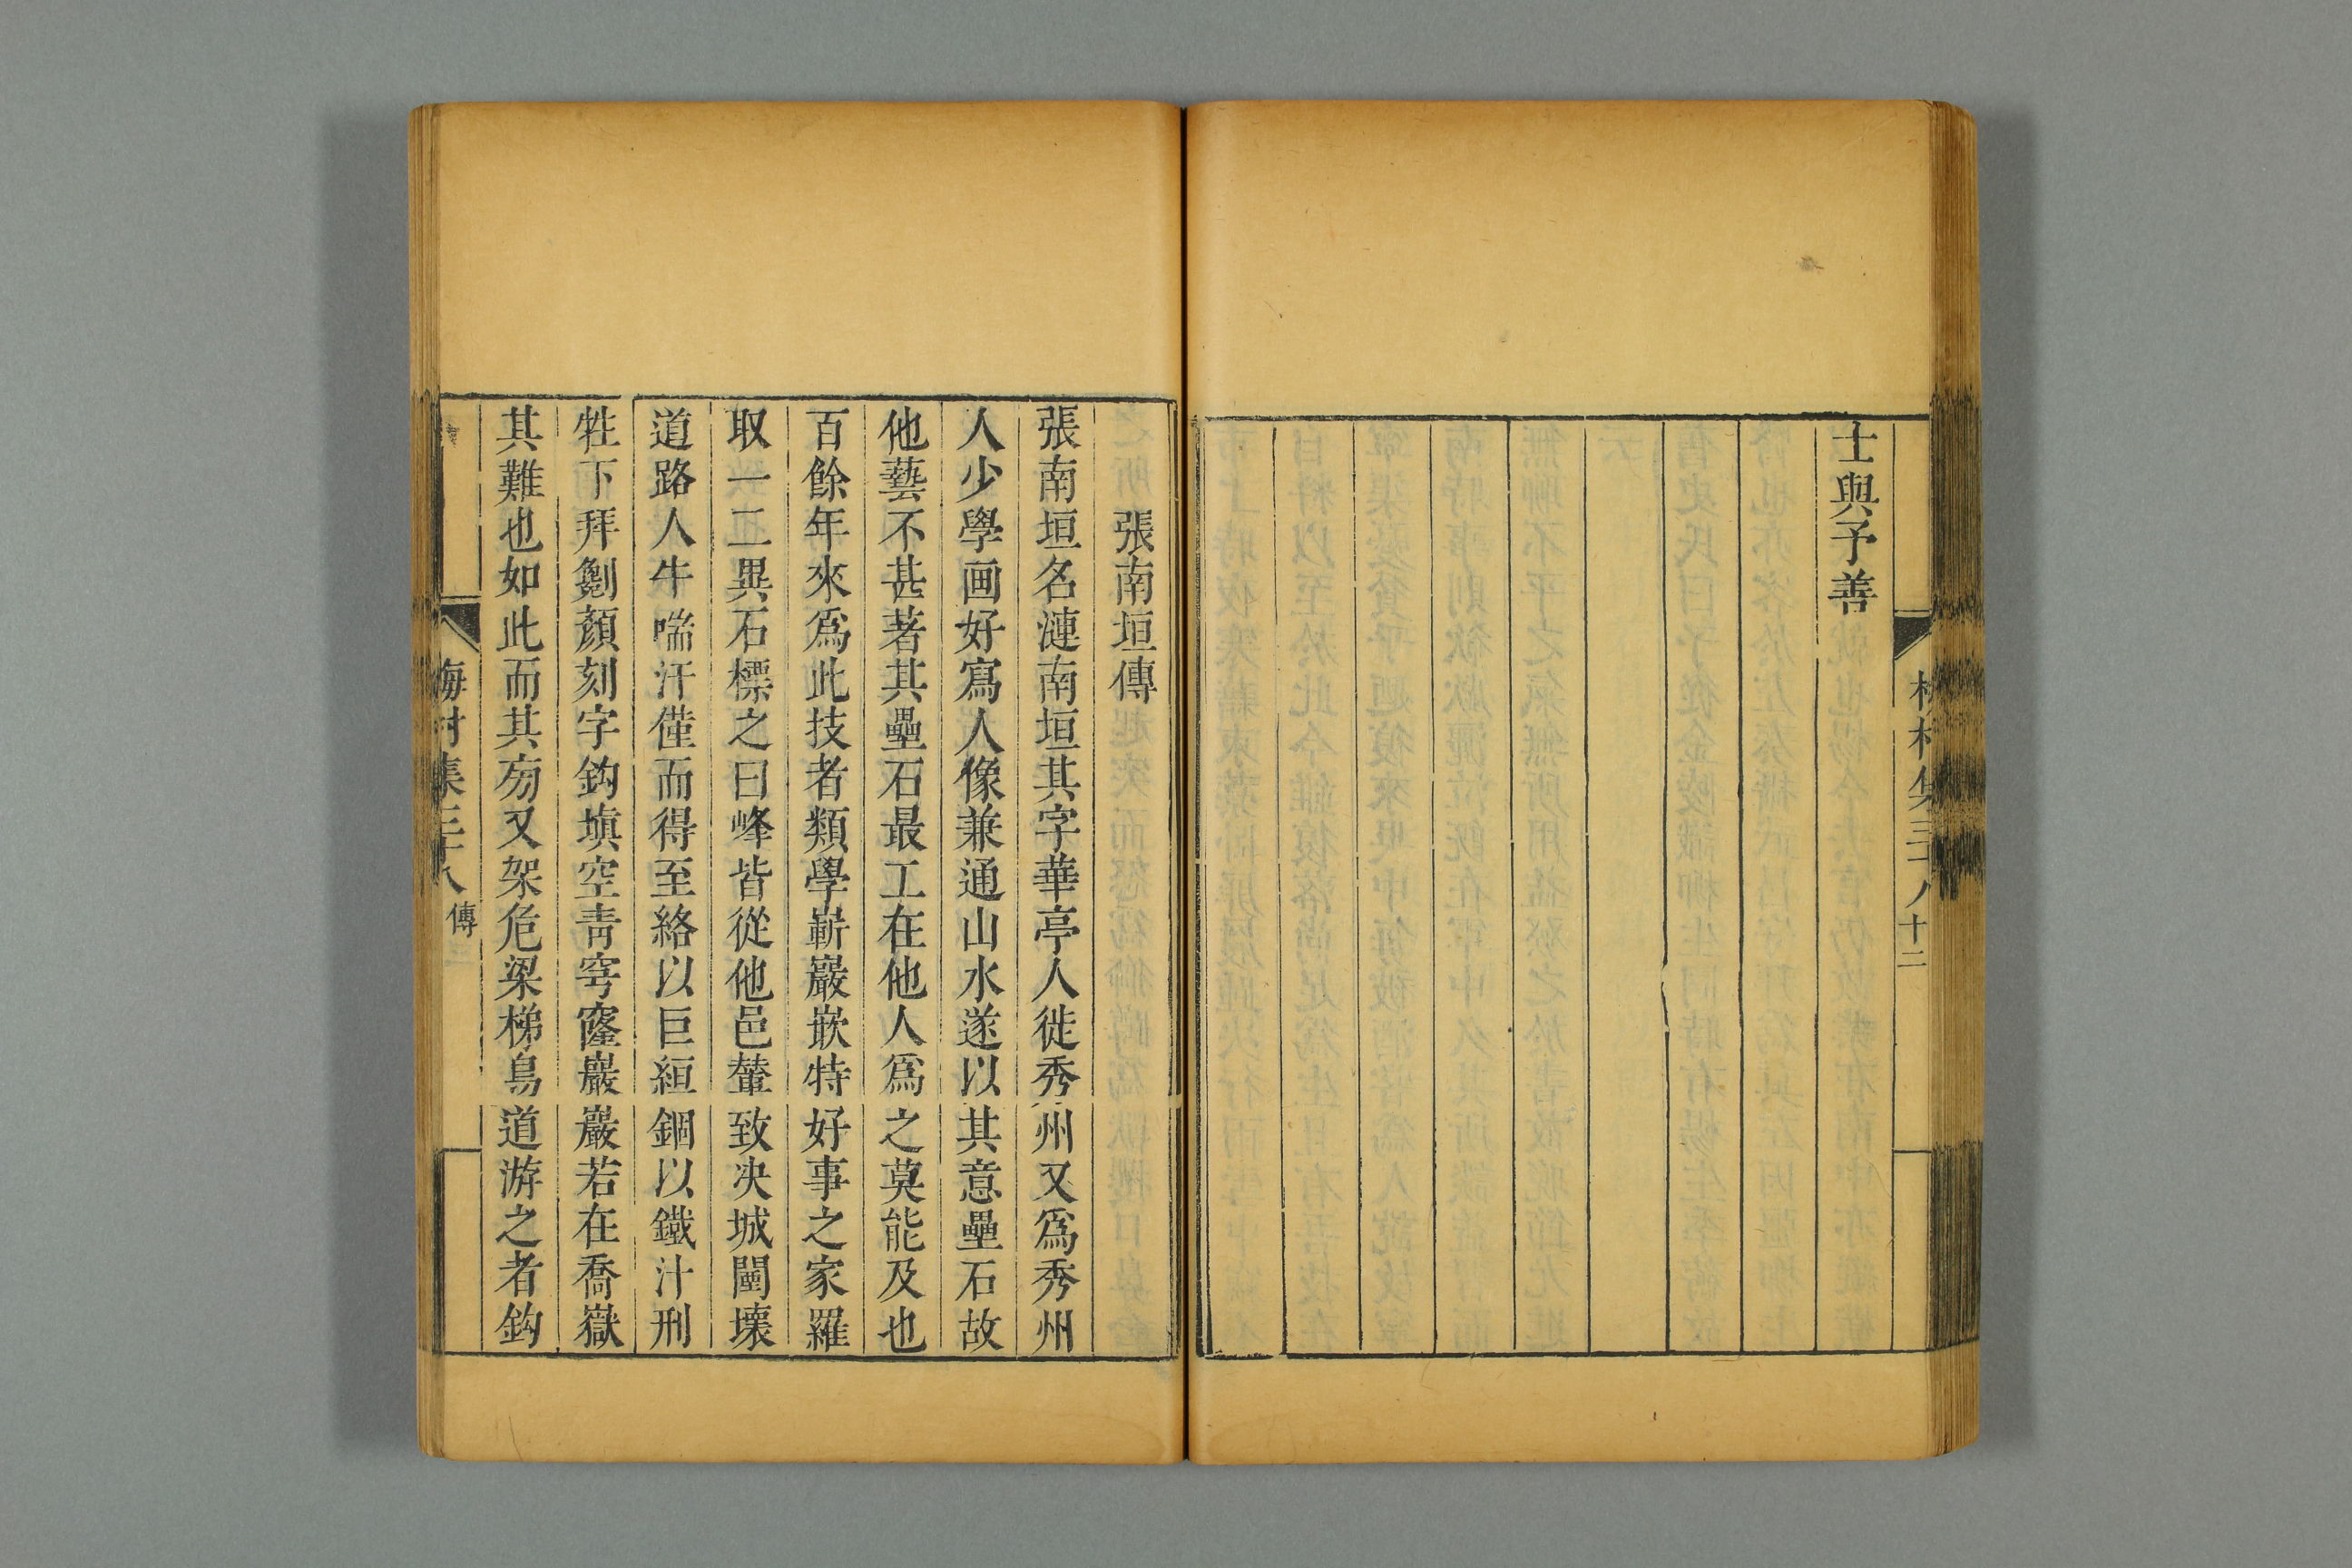 士與予善
梅村集三十八
十二
張南垣傳
張南垣名漣南垣其字華亭人徙秀州又爲秀州
人少學画好寫人像兼通山水遂以其意壘石故
他藝不甚著其壘石最工在他人爲之莫能及也
百餘年來爲此技者類學嶄巖嵌特好事之家羅
取一二異石標之曰峰皆從他邑輦致决城闉壞
道路人牛喘汗僅而得至絡以巨絙錮以鐵汁刑
牲下拜劖顏刻字鈎填空青穹窿巖巖若在喬嶽
其難也如此而其㫄又架危梁梯鳥道游之者鈎
梅村集三十八
傳